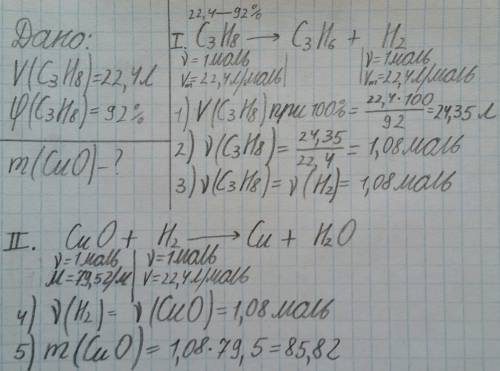 Дано:
V(C₃H₈)=22,4л
φ(C₃H₈)=92%
m(CuO)-?
22,4—92%
I. C₃H₈ → C₃H₆ + H₂
ν=1моль | ν=1моль
Vₘ=22,4л/моль | Vₘ=22,4л/моль
1) V(C₃H₈) при 100% = 22,4·100/92 = 24,35 л
2) ν(C₃H₈) = 24,35/22,4 = 1,08моль
3) ν(C₃H₈) = ν(H₂) = 1,08моль
II. CuO + H₂ → Cu + H₂O
ν=1моль | ν=1моль
M=79,5г/м | V=22,4л/моль
4) ν(H₂) = ν(CuO) = 1,08моль
5) m(CuO) = 1,08·79,5=85,8г